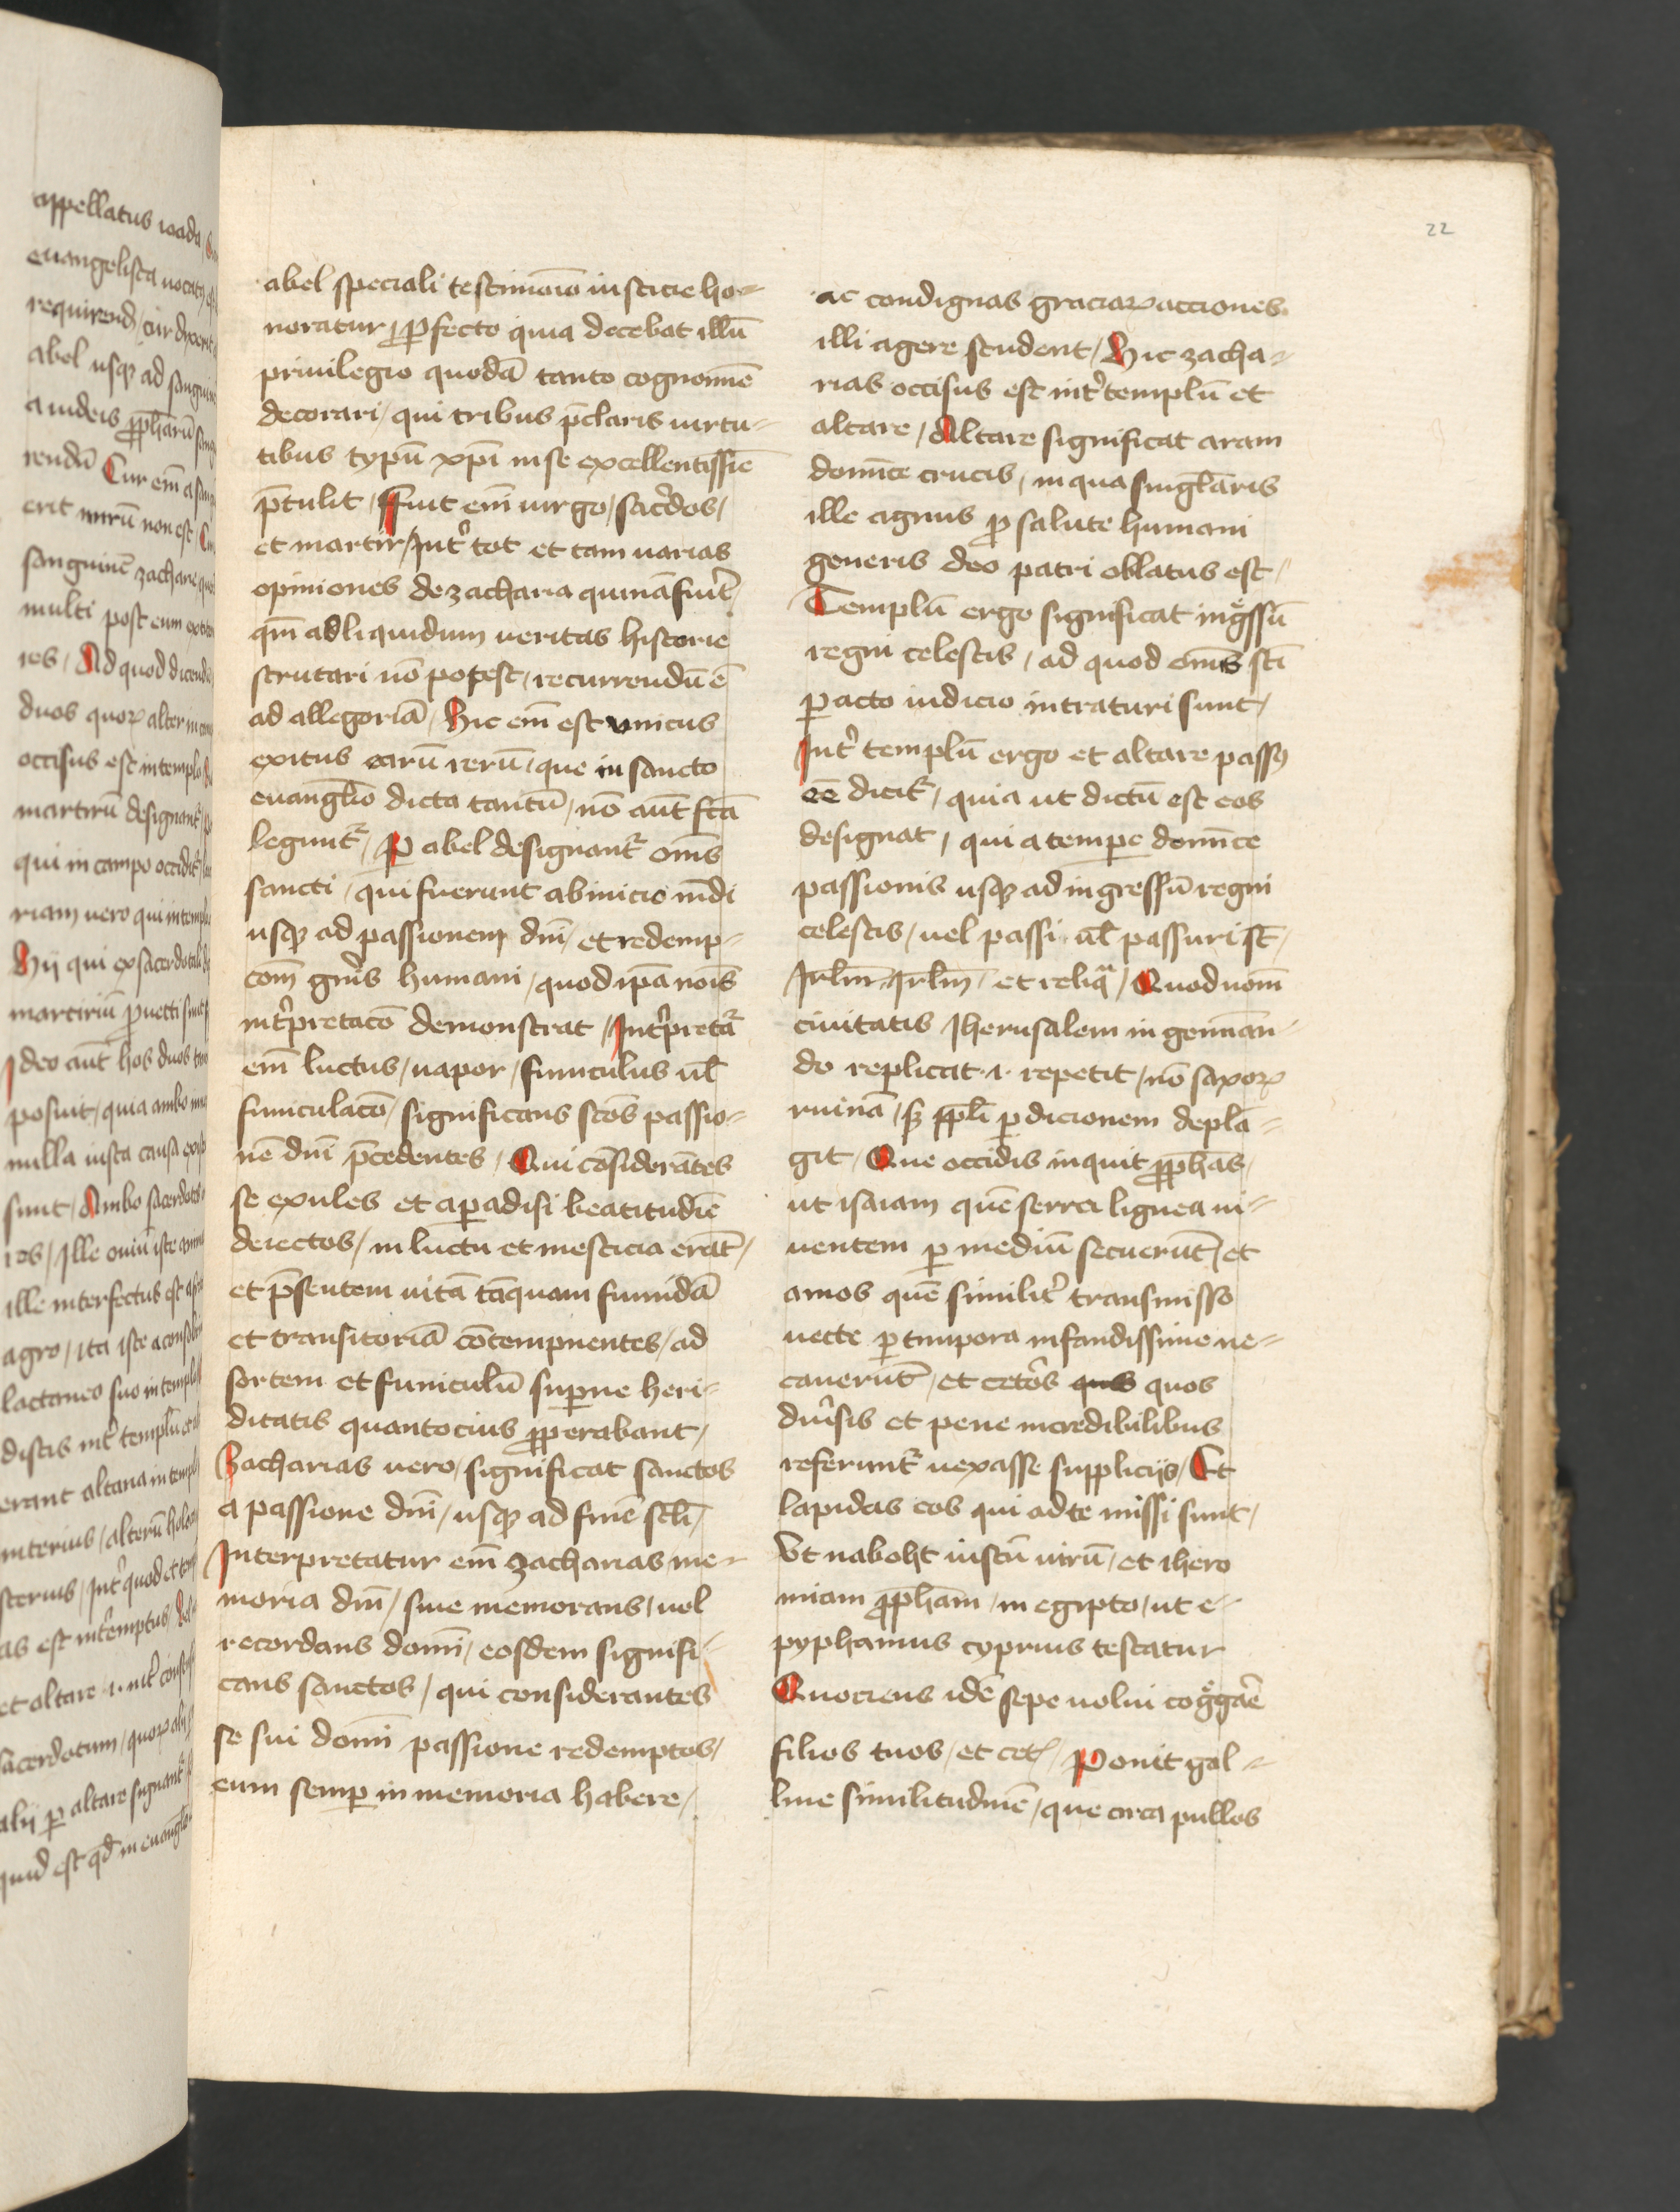 appellatus ioada
euangelista uocat
requirend / cur dyxerit
abel usqꝫ ad sanguinē
a iudeis ꝓpharū
rendū Cur em̄ a
erit mirū non est /
sanguinē zacharie
multi post eum
res / Ad quod dicendū
duos quoꝝ alter in
occisus est in templo
martirū designant᷑
qui in campo occidit᷑
riam uero qui in templo
Hij qui ex sacerdotali
martiriū ꝓuecti sunt
Ideo aūt hos duos
posuit / quia ambo
nulla iusta causa
sunt / Ambo sacerdotes
res / Ille ouiū iste
ille interfectus est
agro / ita iste a
lactaneo suo in templo
discis int᷑ templū et
erant altaria in templo
interius / alterū
sterius / int᷑ quod et
as est int᷑emptus /
et altare .i. int᷑
sacerdotum / quoꝝ alij
alij ꝑ altare signant᷑
quid est qd̄ in euangl̄io
22
abel speciali testimōio iusticie ho-
noratur / ꝓfecto quia decebat illū
priuilegio quodā tanto cognomīe
decorari / qui tribus p̄claris uirtu-
tibus typū xp̄i in se excellentissīe
p̄tulit / ffuit em̄ uirgo / sac᷑dos /
et martir / Int᷑ tot et tam uarias
opiniones de zacharia quinā fuīt /
qm̄ ad liquidum ueritas historie
scrutari nō potest / recurrendū ē
ad allegoriā / Hic em̄ est unicus
exitus earū rerū / que in sancto
euangl̄io dicta tantū / nō aūt fc̄a
legunt᷑ / P abel designant᷑ om̄s
sancti / qui fuerunt ab inicio mūdi
usqꝫ ad passionem dn̄i / et redemp-
cōm gn̄is humani / quod ip̄a nōis
int᷑pretacō demonstrat / Int᷑pretat᷑
em̄ luctus / uapor / funiculus ul̄
funiculacō / significans sc̄os passio-
nē dn̄i p̄cedentes / Qui cōsiderātes
se exules et a paradisi beatitudīe
deiectos / in luctu et mesticia erāt /
et p̄sentem uitā tāquam fumidā
et transitoriā cōtempnentes / ad
sortem et funiculū supꝑne heri-
ditatis quantocius ꝓperabant /
Zacharias uero / significat sanctos
a passione dn̄i / usqꝫ ad finē sc̄li /
Interpretatur em̄ zacharias me-
moria dn̄i / siue memorans / uel
recordans domī / eosdem signifi-
cans sanctos / qui considerantes
se sui domī passione redemptos /
eum semꝑ in memoria habere /
ac condignas graciaꝝ acciones
illi agere student / Hic zacha-
rias occisus est int᷑ templū et
altare / Altare significat aram
domīce crucis / in qua singl̄aris
ille agnus ꝓ salute humani
generis deo patri oblatus est /
Templū ergo significat ingͤssū
regni celestis / ad quod om̄s sc̄i
ꝑacto iudicio intraturi sunt /
Int᷑ templū ergo et altare passꝰ
ee dicit᷑ / quia ut dictū est eos
designat / qui a tempe domīce
passionis usqꝫ ad ingressū regni
celestis / uel passi ul̄ passuri st̄ /
Irl̄m Irl̄m / et reliqᵃ / Quod nom̄
ciuitatis Iherusalem in geminan-
do replicat .i. repetit / nō saxoꝝ
ruinā / sꝫ ppl̄i ꝑdicionem deplā-
git / Que occidis inquit ꝓphās /
ut isaiam quē serra lignea ui-
uentem ꝑ mediū secuerūt / et
amos quē similit᷑ transmisso
uecte ꝑ timpora infandissime ne-
cauerūt / et cet᷑os quos quos
diu᷑sis et pene incredibilibus
referunt᷑ uexasse supplicijs / Et
lapidas eos qui ad te missi sunt /
Vt naboht iustū uirū / et ihero
miam ꝓpham / in egipto / ut e-
pyphanius cyprius testatur
Quociens idē sepe uolui cogͤgaē
filios tuos / et cet᷑ / Ponit gal-
line similitudinē / que circa pullos